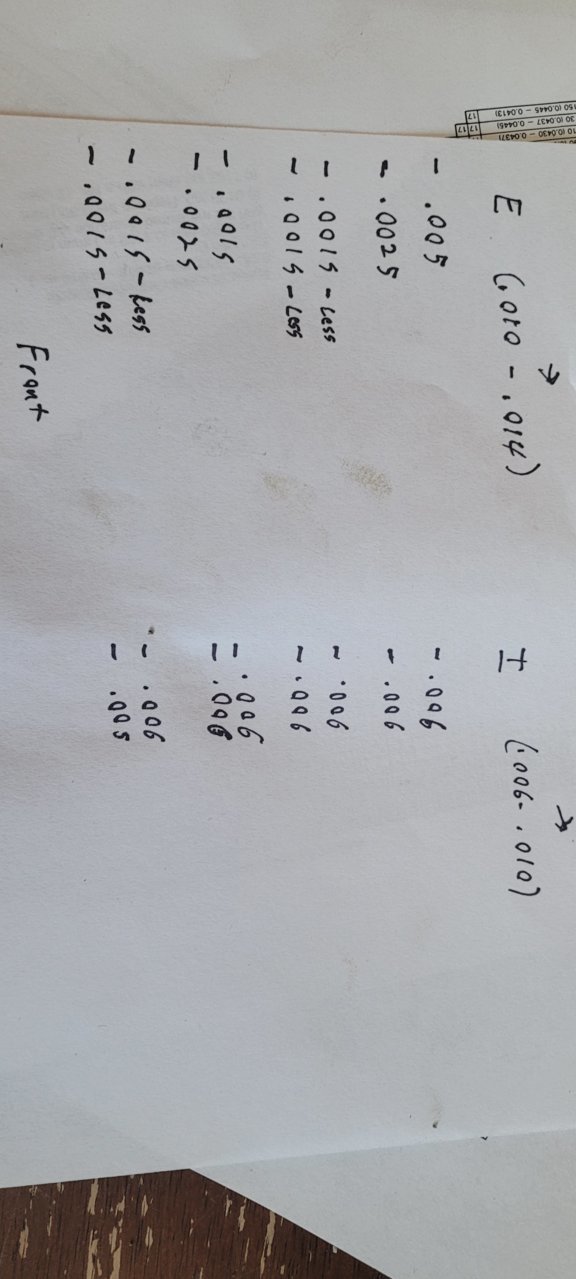 E (.010 - .014) →
I (.006 - .010) →
- .005 - .006
- .0025 - .006
- .0015 - Less - .006
- .0015 - Less - .006
- .0015 - .006
- .0025 - .006
- .0015 - Less - .006
- .0015 - Less - .005
Front
(0.0430 - 0.0437)
30 (0.0437 - 0.0445) 17 17
150 (0.0445 - 0.0413) 17